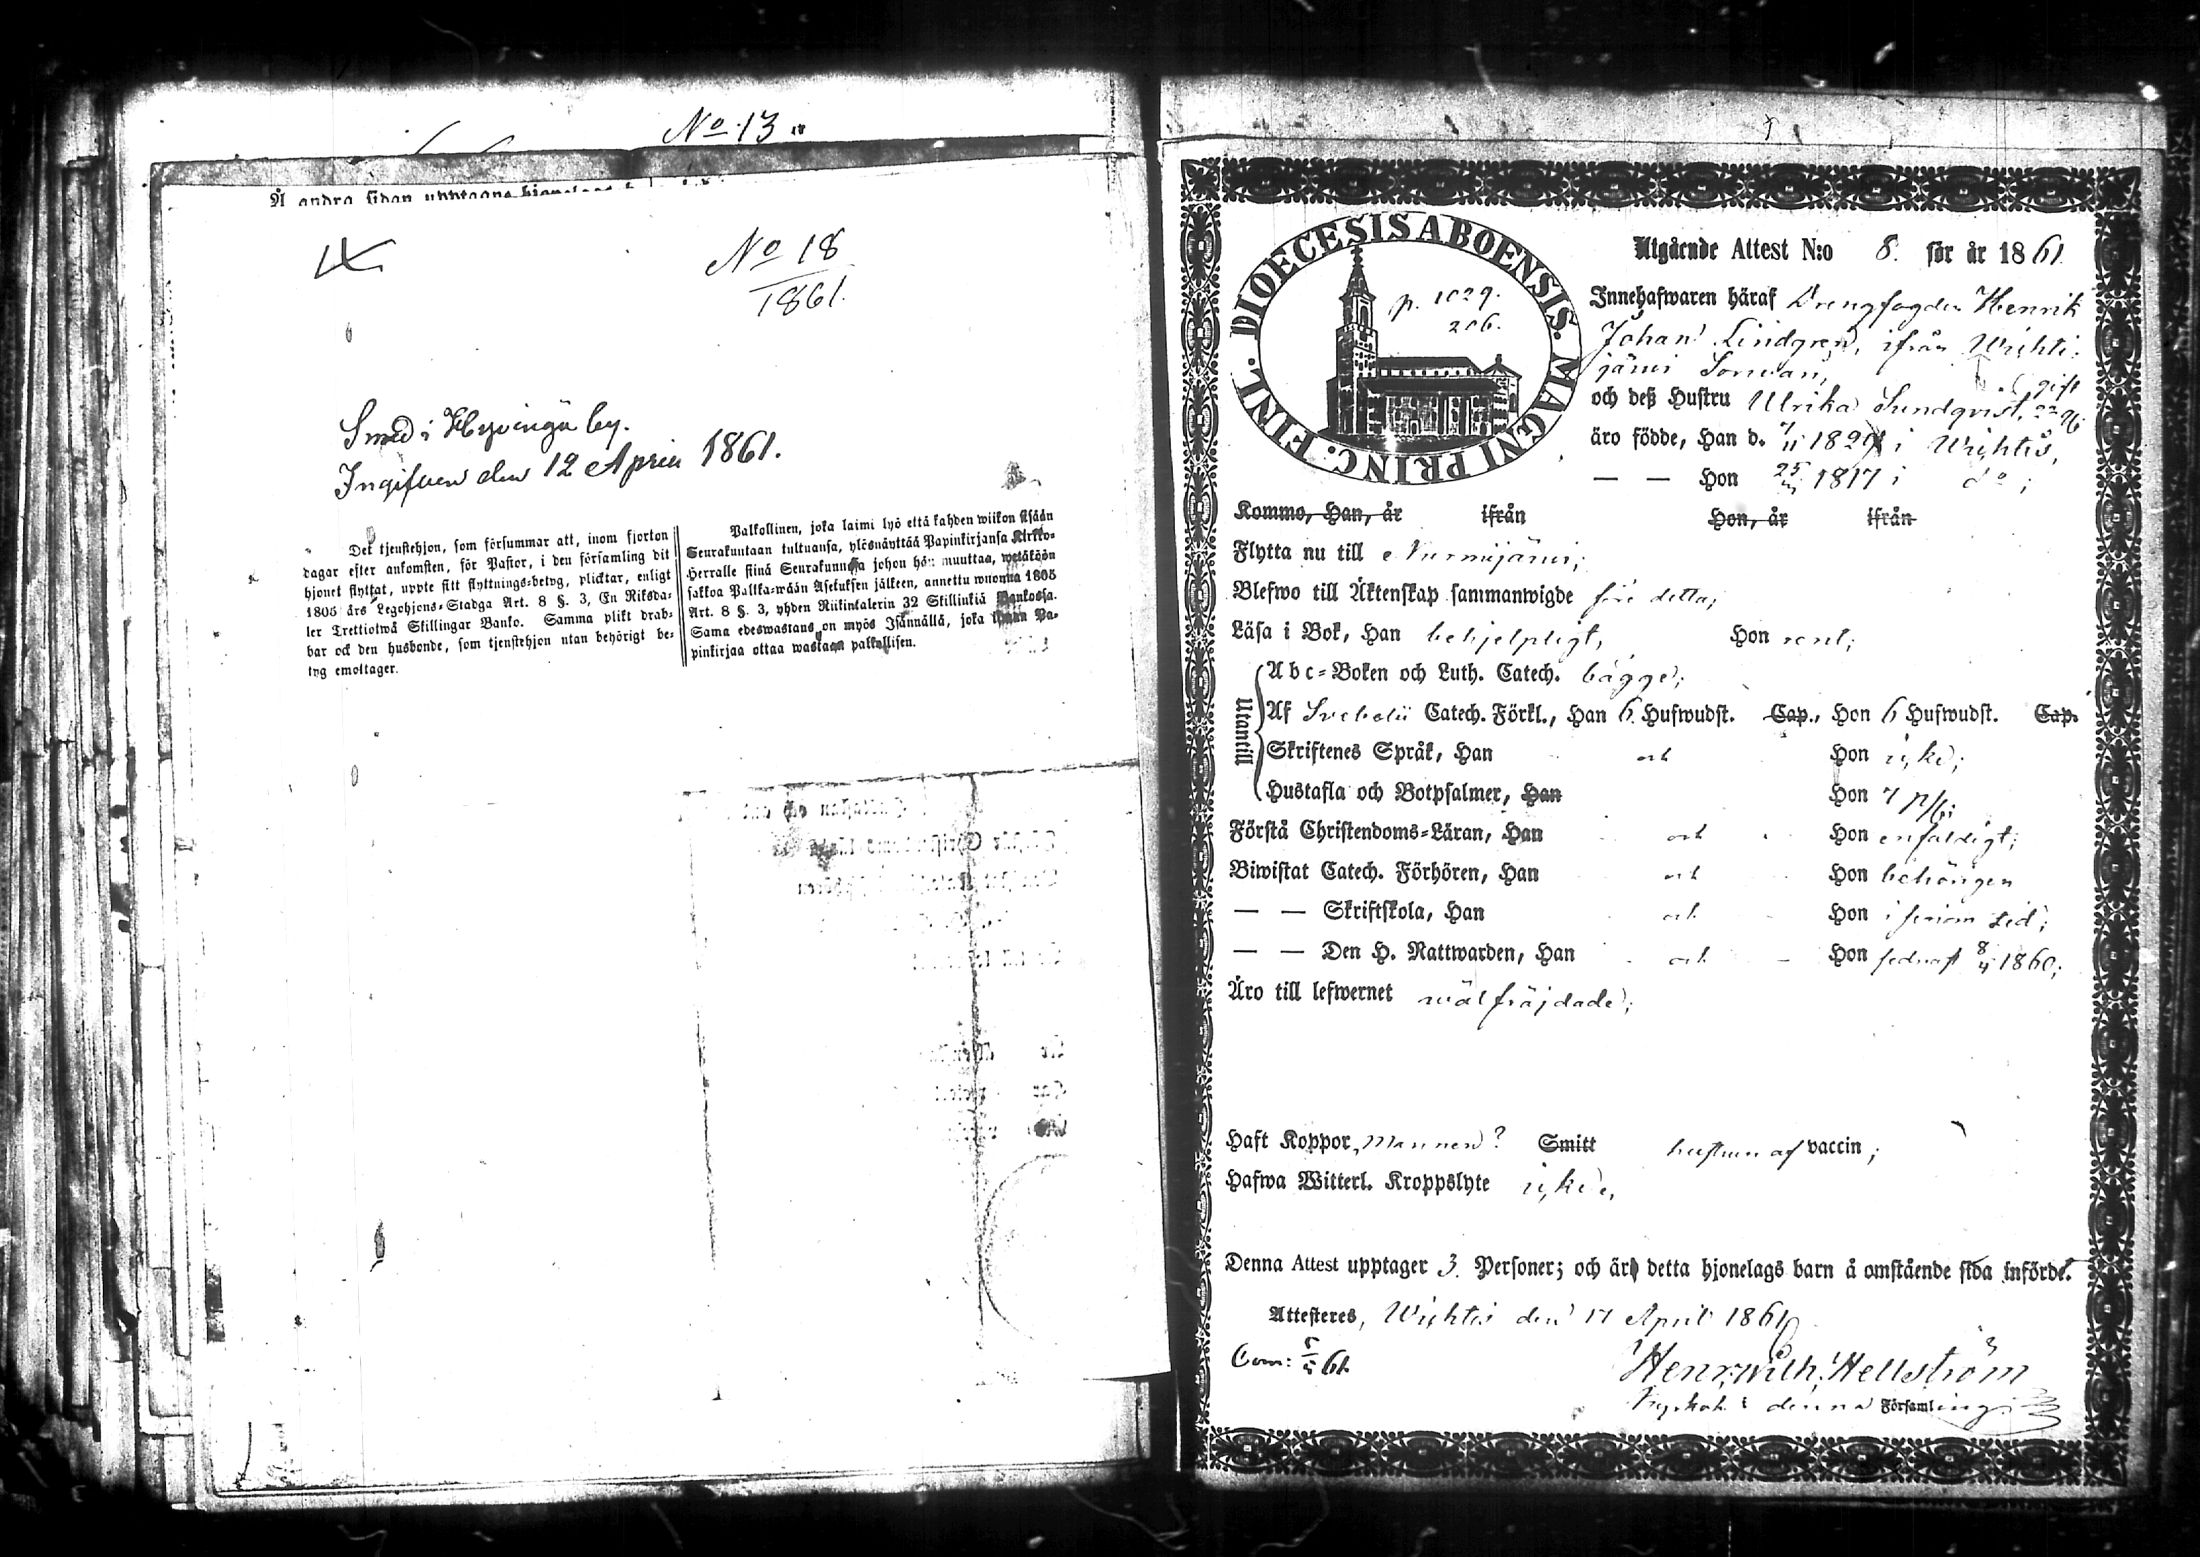 No 13
Å andra sidan upptagne hjonelags
No 18
1861.
Smed i Hyvinge by.
Ingifven den 12 April 1861.
Det tjenstehjon, som försummar att, inom fjorton
dagar efter ankomsten, för Pastor, i den församling dit
hjonet flyttat, uppte sitt flyttnings-betyg, plicktar, enligt
1805 års Legohjons-Stadga Art. 8 §. 3, En Riksda-
ler Trettiotwå Skillingar Banko. Samma plikt drab-
bar ock den husbonde, som tjenstehjon utan behörigt be-
tyg emottager.
Palkollinen, joka laimi lyö että kahden wiikon sisään
Seurakuntaan tultuansa, ylösnäyttää Papinkirjansa Kirkko-
Herralle siinä Seurakunnassa johon hän muuttaa, wetäköön
sakkoa Palkka-wään Asetuksen jälkeen, annettu wuonna 1805
Art. 8 §. 3, yhden Riikintalerin 32 Skillinkiä Bankossa.
Sama edeswastaus on myös Isännällä, joka ilman Pa-
pinkirjaa ottaa wastaan palkollisen.
DIOECESIS ABOENSIS. MAGNI PRINC. FINL.
p. 1029.
206.
Utgående Attest N:o 8. för år 1861
Innehafwaren häraf Drengfogden Henrik
Johan Lindgren, ifrån Wichti
järvi
och deß Hustru Ulrika Sundqvist,
gift
äro födde, Han d. 1829 i Wichtis,
— — Hon 25 1817 i do;
Kommo, Han, år ifrån Hon, år ifrån
Flytta nu till Nurmijärvi;
Blefwo till Äktenskap sammanwigde före detta;
Läsa i Bok, Han behjelpligt, Hon rent;
Utantill
Abc-Boken och Luth. Catech. bägge;
Af Svebelii Catech. Förkl., Han 6 Hufwudst. Cap., Hon 6 Hufwudst. Cap.
Skriftenes Språk, Han och Hon icke;
Hustafla och Botpsalmer, Han Hon 7
Förstå Christendoms-Läran, Han och Hon enfaldigt;
Biwistat Catech. Förhören, Han och Hon behörigen
— — Skriftskola, Han och Hon i sinom tid;
— — Den H. Nattwarden, Han och Hon sednast 1860;
Äro till lefwernet wälfräjdade;
Haft Koppor, Mannen? Smitt hustrun af vaccin;
Hafwa Witterl. Kroppslyte icke,
Denna Attest upptager 3. Personer; och äro detta hjonelags barn å omstående sida införde.
Attesteres, Wichtis den 11 April 1861
Com: 61.
Henr. Wilh. Hellström
i denna Församling